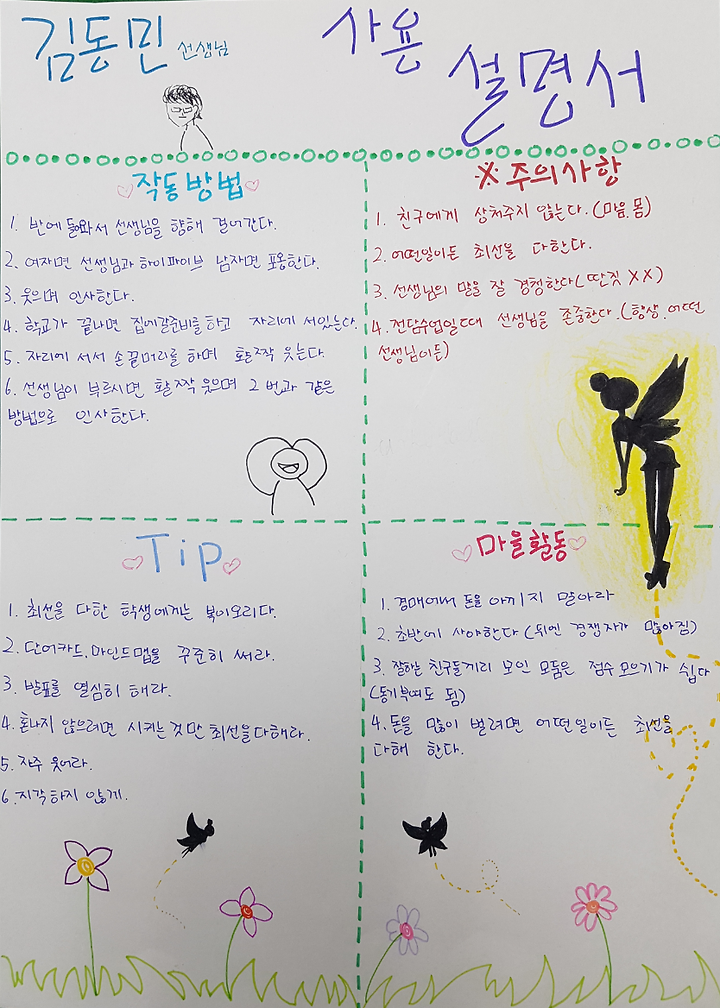 김동민 선생님
사용
설명서
작동방법
1. 반에 들와서 선생님을 향해 걸어간다.
2. 여자면 선생님과 하이파이브 남자면 포옹한다.
3. 웃으며 인사한다.
4. 학교가 끝나면 집에갈준비를하고 자리에 서있는다.
5. 자리에 서서 손끌머리를 하며 활짝 웃는다.
6. 선생님이 부르시면 활짝 웃으며 2번과 같은
방법으로 인사한다.
※주의사항
1. 친구에게 상처주지 않는다.(마음.몸)
2. 어떤일이든 최선을 다한다.
3. 선생님의 말을 잘 경청한다(딴짓 XX)
4. 전담수업일때 선생님을 존중한다.(항상.어떤
선생님이든)
Tip
1. 최선을 다한 학생에게는 복이오리다.
2. 단어카드.마인드맵을 꾸준히 써라.
3. 발표를 열심히 해라.
4. 혼나지 않으려면 시키는것만 최선을다해라.
5. 자주 웃어라.
6. 지각하지 않게.
마을활동
1. 경매에서 돈을 아끼지 말아라
2. 초반에 사야한다(뒤엔 경쟁자가 많아짐)
3. 잘하는 친구들끼리 모인 모둠은 점수 모으기가 쉽다
(동기부여도 됨)
4. 돈을 많이 벌려면 어떤일이든 최선을
다해 한다.